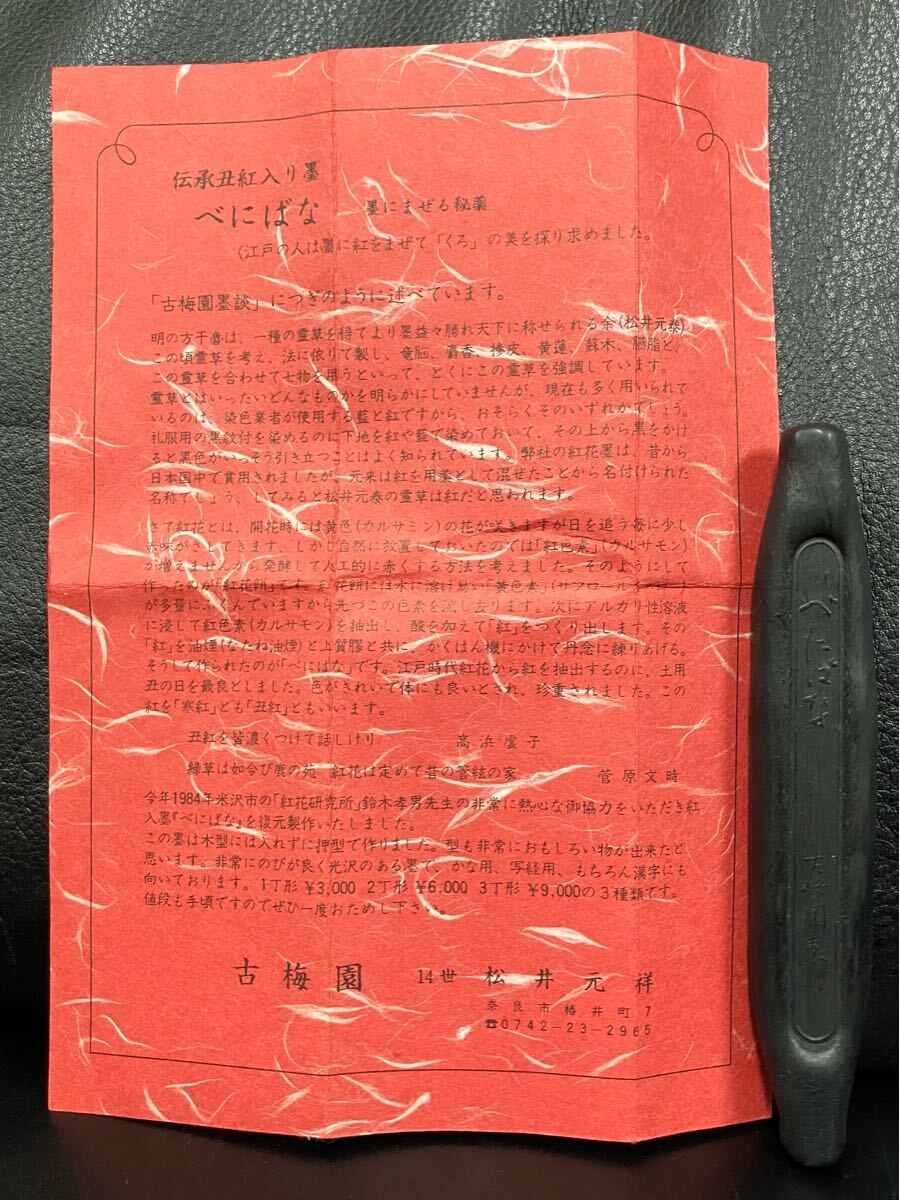 伝承丑紅入り墨
べにばな 墨にまぜる秘薬
〈江戸の人は墨に紅をまぜて「くろ」の美を探り求めました。
「古梅園墨談」につぎのように述べています。
明の方于魯は、一種の霊草を得てより墨益々勝れ天下に称せられる余(松井元泰)
この頃霊草を考え、法に依りて製し、竜脳、麝香、㯃皮、黄蓮、蘇木、臙脂と、
この霊草を合わせて七物を用うといって、とくにこの霊草を強調しています。
霊草とはいったいどんなものかを明らかにしていませんが、現在も多く用いられて
いるのは、染色業者が使用する藍と紅ですから、おそらくそのいずれかでしょう。
礼服用の黒紋付を染めるのに下地を紅や藍で染めておいて、その上から黒をかけ
ると黒色がいっそう引き立つことはよく知られています。弊社の紅花墨は、昔から
日本国中で賞用されましたが、元来は紅を用薬として混ぜたことから名付けられた
名称でしょう、してみると松井元泰の霊草は紅だと思われます。
さて紅花とは、開花時には黄色(カルサミン)の花が咲きますが日を追う毎に少し
赤味がさしてきます、しかし自然に放置しておいたのでは「紅色素」(カルサモン)
が増えませんから発酵して人工的に赤くする方法を考えました。そのようにして
作ったのが「紅花餅」です。紅花餅には水に溶け易い「黄色素」
が多量にふくんでいますから先づこの色素を流し去ります。次にアルカリ性溶液
に浸して紅色素(カルサモン)を抽出し、酸を加えて「紅」をつくり出します。その
「紅」を油煙(なたね油煙)と上質膠と共に、かくはん機にかけて丹念に練りあげる。
そうして作られたのが「べにばな」です。江戸時代紅花から紅を抽出するのに、土用
丑の日を最良としました。色がきれいで体にも良いとされ、珍重されました。この
紅を「寒紅」とも「丑紅」ともいいます。
丑紅を皆濃くつけて話しけり 高浜虚子
緑草は如今び鹿の苑 紅花は定めて昔の管絃の家 菅原文時
今年1984年米沢市の「紅花研究所」鈴木孝男先生の非常に熱心な御協力をいただき紅
入墨『べにばな』を復元製作いたしました。
この墨は木型には入れずに押型で作りました。型も非常におもしろい物が出来たと
思います。非常にのびが良く光沢のある墨で、かな用、写経用、もちろん漢字にも
向いております。1丁形 ¥3,000 2丁形 ¥6,000 3丁形 ¥9,000の3種類です。
値段も手頃ですのでぜひ一度おためし下さい。
古梅園 14世 松井元祥
奈良市椿井町7
☎0742-23-2965
べにばな
古梅園製